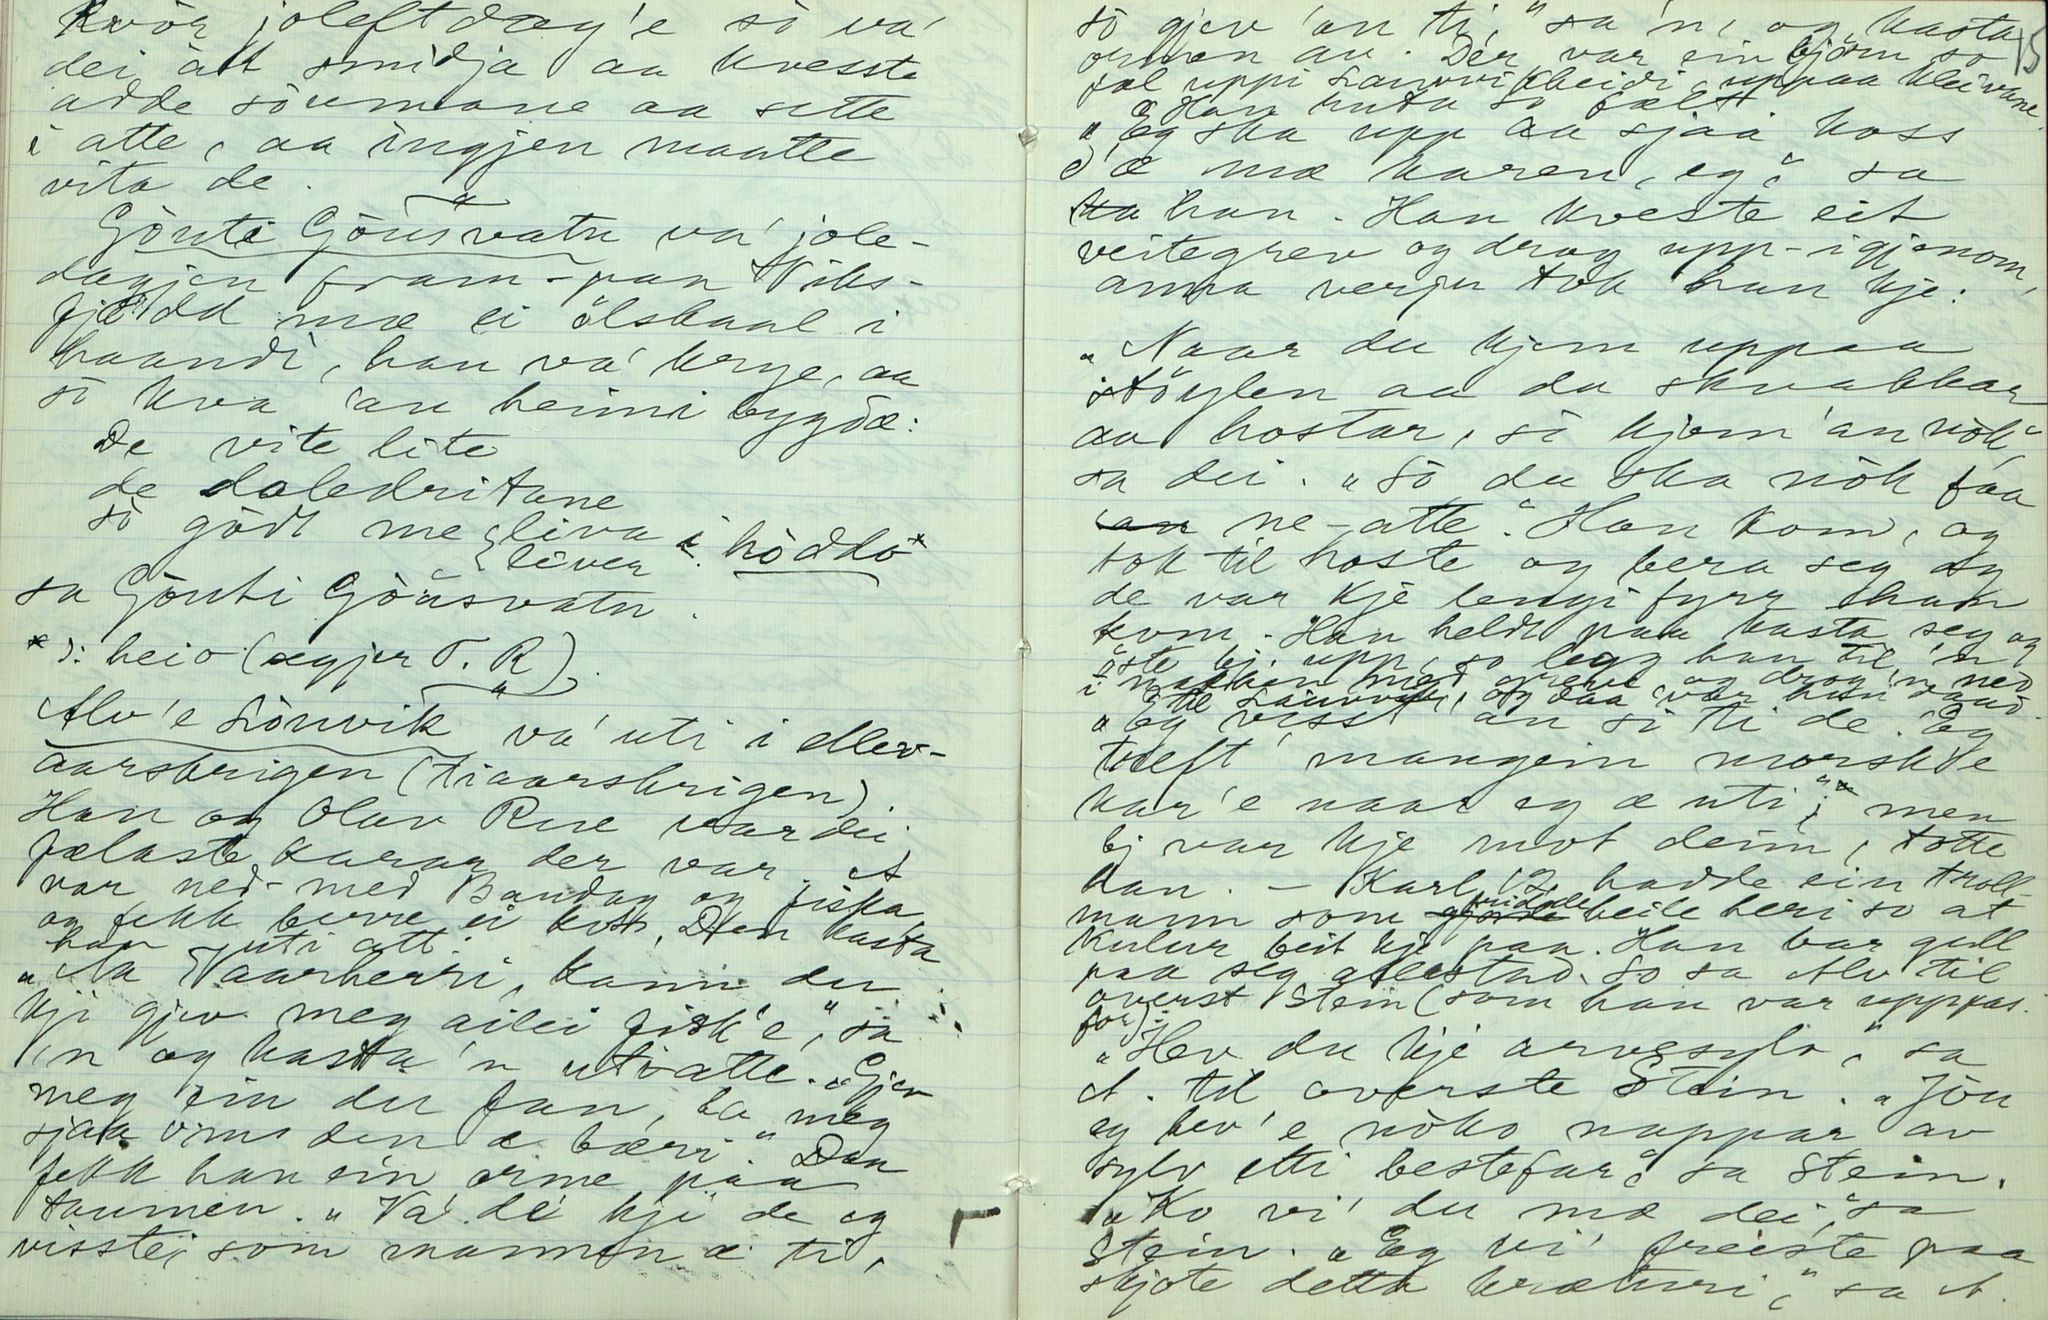 Kvòr joleftdag'e sò va'
dei àt smidja aa kvesste
adde sòumane aa sette
i atte, aa ingjen maatte
vita de.
Gònti Gòusvatn va' jole-
dagjen fram-paa Viks-
fjødd mæ ei ölskaal i
haandi, han va' krye, aa
sò kva 'an heimi bygdæ:
De vite lite
de daledritane
sò gòdt me liva i hòddò*
liver
sa Gònti Gòusvatn.
* ɔ: heio (segjer T. R.)
Alv'e Lòuvik va' uti i ellev-
aarskrigen (tiaarskrigen).
Han og Olav Rue var dei
fælaste karar der var. A
var ned-med Bandag og fiska
og fekk berre ei kot. Den kasta
han uti att:
"Aa Vaarherri, kann du
kji gjev meg ailei fisk'e," sa
'n og kasta 'n utiatte. "Gjev
meg ein du fan, la meg
sjaa om den æ bæri." Daa
fekk han ein orme paa
taumen. "Va' de' kji de eg
visste, som mannen æ ti,
15
sò gjev 'an ti," sa 'n, og kasta
ormen av. Der var ein bjørn so
fæl uppi Lauvvikheidi, uppaa Kleivane.
Han huta so fælt.
"Eg ska upp aa sjaa koss
d'æ mæ karen, eg," sa
han. Han kveste eit
veitegrev og drog upp-igjenom,
anna verju tok han kje.
"Naar du kjem uppaa
støylen aa du skvabbar
aa hostar, sò kjem 'an nòk,"
sa dei. "Sò du ska nòk faa
'an ne-atte." Han kom, og
tok til hoste og bera seg og
de var kje lengi fyrr han
kom. Han heldt paa kasta seg og
øste bj. upp, so legg han til 'n
i nakken med grevi og drog 'n ned
til Lauvvik, og daa var han daud.
"Eg visst' 'an si ti de. Eg
treft' mangein morskæ
kar'e naar eg æ uti;" men
bj var kje mot deim, totte
han. – Karl 12 hadde ein troll-
mann som gjorde heile heri so at
kulur beit kje paa. Han bar gull
paa seg allestad. So sa Alv til
overst Stein (som han var uppas.
for):
"Hev du kje arvesylv," sa
A. til overste Stein. "Jòu
eg hev'e nòko nappar av
sylv etti bestefar," sa Stein.
"Ko vi' du mæ dei," sa
Stein. "Eg vi' freiste paa
skjote detta kræturi," sa A.